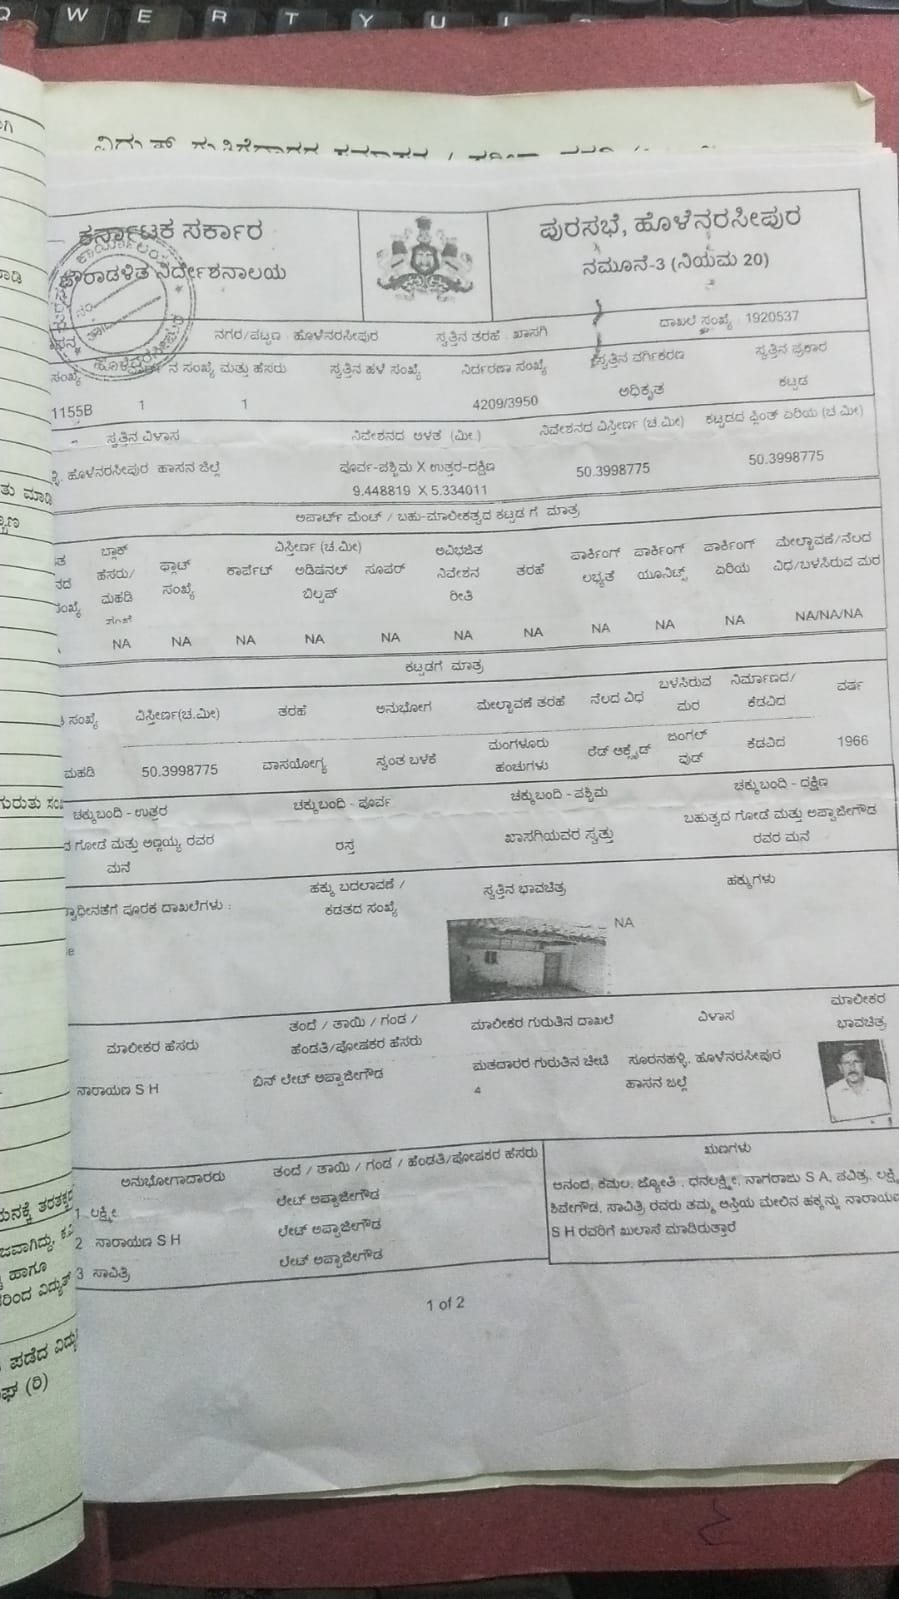 Q W E R T Y U I
ಕರ್ನಾಟಕ ಸರ್ಕಾರ
ಪೌರಾಡಳಿತ ನಿರ್ದೇಶನಾಲಯ
ಪುರಸಭೆ, ಹೊಳೆನರಸೀಪುರ
ನಮೂನೆ-3 (ನಿಯಮ 20)
ನಗರ/ಪಟ್ಟಣ ಹೊಳೆನರಸೀಪುರ ಸ್ವತ್ತಿನ ತರಹೆ ಖಾಸಗಿ ದಾಖಲೆ ಸಂಖ್ಯೆ 1920537
ಸಂಖ್ಯೆ ನ ಸಂಖ್ಯೆ ಮತ್ತು ಹೆಸರು ಸ್ವತ್ತಿನ ಹಳೆ ಸಂಖ್ಯೆ ನಿರ್ದರಣಾ ಸಂಖ್ಯೆ ಸ್ವತ್ತಿನ ವರ್ಗಿಕರಣ ಸ್ವತ್ತಿನ ಪ್ರಕಾರ
1155B 1 1 4209/3950 ಅಧಿಕೃತ ಕಟ್ಟಡ
ಸ್ವತ್ತಿನ ವಿಳಾಸ ನಿವೇಶನದ ಅಳತೆ (ಮೀ.) ನಿವೇಶನದ ವಿಸ್ತೀರ್ಣ (ಚ.ಮೀ) ಕಟ್ಟಡದ ಪ್ಲಿಂತ್ ಏರಿಯ (ಚ.ಮೀ)
ಹೊಳೆನರಸೀಪುರ ಹಾಸನ ಜಿಲ್ಲೆ ಪೂರ್ವ-ಪಶ್ಚಿಮ X ಉತ್ತರ-ದಕ್ಷಿಣ 50.3998775 50.3998775
9.448819 X 5.334011
ಅಪಾರ್ಟ್ ಮೆಂಟ್ / ಬಹು-ಮಾಲೀಕತ್ವದ ಕಟ್ಟಡ ಗೆ ಮಾತ್ರ
ಬ್ಲಾಕ್ ವಿಸ್ತೀರ್ಣ (ಚ.ಮೀ) ಅವಿಭಜಿತ
ಹೆಸರು/ ಫ್ಲಾಟ್ ಕಾರ್ಪೆಟ್ ಅಡಿಷನಲ್ ಸೂಪರ್ ನಿವೇಶನ ತರಹೆ ಪಾರ್ಕಿಂಗ್ ಪಾರ್ಕಿಂಗ್ ಪಾರ್ಕಿಂಗ್ ಮೇಲ್ಛಾವಣಿ/ನೆಲದ
ಮಹಡಿ ಸಂಖ್ಯೆ ಬಿಲ್ಟಪ್ ರೀತಿ ಲಭ್ಯತೆ ಯೂನಿಟ್ಸ್ ಏರಿಯ ವಿಧ/ಬಳಸಿರುವ ಮರ
NA NA NA NA NA NA NA NA NA NA NA/NA/NA
ಕಟ್ಟಡಗೆ ಮಾತ್ರ
ಸಂಖ್ಯೆ ವಿಸ್ತೀರ್ಣ(ಚ.ಮೀ) ತರಹೆ ಅನುಭೋಗ ಮೇಲ್ಛಾವಣಿ ತರಹೆ ನೆಲದ ವಿಧ ಬಳಸಿರುವ ಮರ ನಿರ್ಮಾಣದ/ಕೆಡವಿದ ವರ್ಷ
ಮಹಡಿ 50.3998775 ವಾಸಯೋಗ್ಯ ಸ್ವಂತ ಬಳಕೆ ಮಂಗಳೂರು ಹಂಚುಗಳು ರೆಡ್ ಆಕ್ಸೈಡ್ ಜಂಗಲ್ ವುಡ್ ಕೆಡವಿದ 1966
ಚಕ್ಕುಬಂದಿ - ಉತ್ತರ ಚಕ್ಕುಬಂದಿ - ಪೂರ್ವ ಚಕ್ಕುಬಂದಿ - ಪಶ್ಚಿಮ ಚಕ್ಕುಬಂದಿ - ದಕ್ಷಿಣ
ಗೋಡೆ ಮತ್ತು ಅಣ್ಣಯ್ಯ ರವರ ರಸ್ತೆ ಖಾಸಗಿಯವರ ಸ್ವತ್ತು ಬಹುತ್ವದ ಗೋಡೆ ಮತ್ತು ಅಪ್ಪಾಜೀಗೌಡ
ಮನೆ ರವರ ಮನೆ
ಸ್ವಾಧೀನತೆಗೆ ಪೂರಕ ದಾಖಲೆಗಳು : ಹಕ್ಕು ಬದಲಾವಣೆ / ಸ್ವತ್ತಿನ ಭಾವಚಿತ್ರ ಹಕ್ಕುಗಳು
ಕಡತದ ಸಂಖ್ಯೆ
NA
ಮಾಲೀಕರ ಹೆಸರು ತಂದೆ / ತಾಯಿ / ಗಂಡ / ಮಾಲೀಕರ ಗುರುತಿನ ದಾಖಲೆ ವಿಳಾಸ ಮಾಲೀಕರ
ಹೆಂಡತಿ/ಪೋಷಕರ ಹೆಸರು ಭಾವಚಿತ್ರ
ನಾರಾಯಣ S H ಬಿನ್ ಲೇಟ್ ಅಪ್ಪಾಜೀಗೌಡ ಮತದಾರರ ಗುರುತಿನ ಚೀಟಿ ಸೂರನಹಳ್ಳಿ, ಹೊಳೆನರಸೀಪುರ
4 ಹಾಸನ ಜಿಲ್ಲೆ
ಅನುಭೋಗಾದಾರರು ತಂದೆ / ತಾಯಿ / ಗಂಡ / ಹೆಂಡತಿ/ಪೋಷಕರ ಹೆಸರು
1 ಲಕ್ಷ್ಮೀ ಲೇಟ್ ಅಪ್ಪಾಜೀಗೌಡ
2 ನಾರಾಯಣ S H ಲೇಟ್ ಅಪ್ಪಾಜೀಗೌಡ
3 ಸಾವಿತ್ರಿ ಲೇಟ್ ಅಪ್ಪಾಜೀಗೌಡ
ಋಣಗಳು
ಆನಂದ, ಕಮಲ, ಜ್ಯೋತಿ, ಧನಲಕ್ಷ್ಮೀ, ನಾಗರಾಜು S A, ಪವಿತ್ರ,
ಶಿವೇಗೌಡ, ಸಾವಿತ್ರಿ ರವರು ತಮ್ಮ ಆಸ್ತಿಯ ಮೇಲಿನ ಹಕ್ಕನ್ನು ನಾರಾಯಣ
S H ರವರಿಗೆ ಖುಲಾಸೆ ಮಾಡಿರುತ್ತಾರೆ
1 of 2